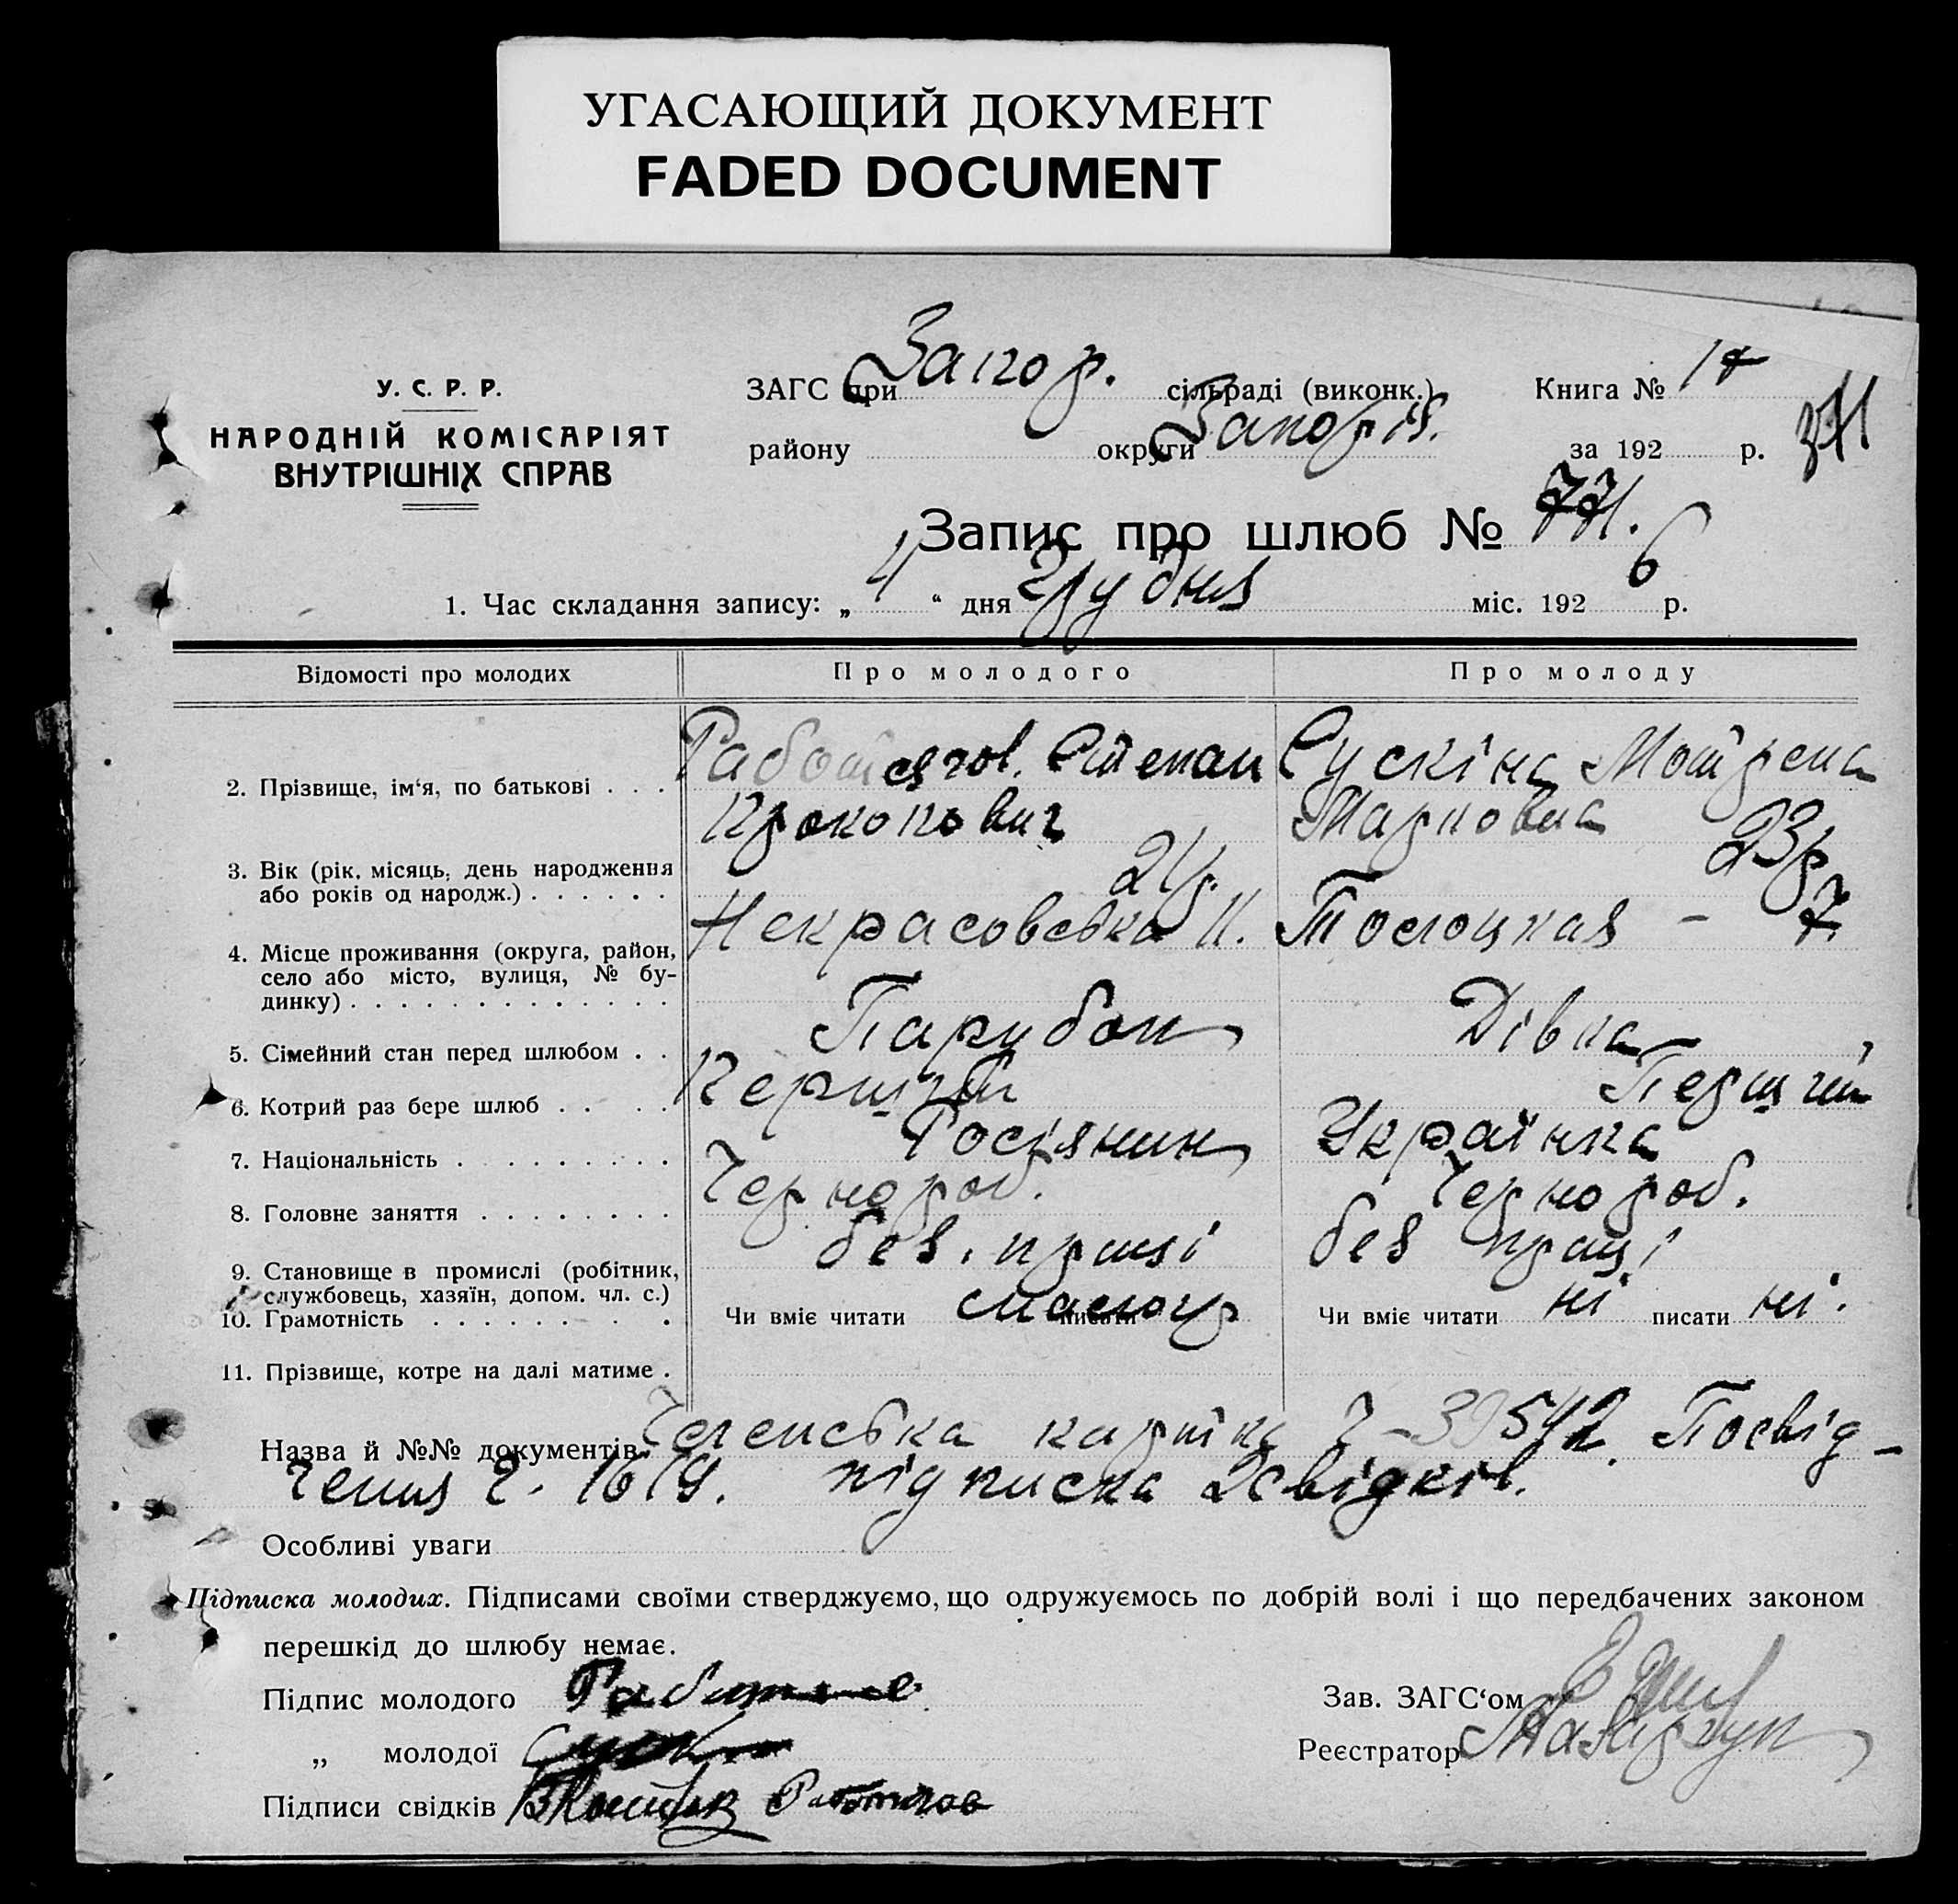 УГАСАЮЩИЙ ДОКУМЕНТ
FADED DOCUMENT
У. С. Р. Р.
НАРОДНІЙ КОМІСАРІЯТ
ВНУТРІШНІХ СПРАВ
ЗАГС при Запор. сільраді (виконк.) Книга № 17
району округи Запоріз. за 192 р. 371
Запис про шлюб № 771.
1. Час складання запису: „ 4 “ дня Грудня міс. 192 6 р.
Відомості про молодих Про молодого Про молоду
2. Прізвище, ім‘я, по батькові . . . Степан Прокопович Сускіна Мотрена Марковна
3. Вік (рік, місяць, день народження
або років од народж.) . . . . . . 21р. 23р
4. Місце проживання (округа, район,
село або місто, вулиця, № бу-
динку) . . . . . . . . . . . . . Некрасовська 11. – 7.
5. Сімейний стан перед шлюбом . . Парубок Дівка
6. Котрий раз бере шлюб . . . . Перший Перший
7. Національність . . . . . . . . . Росіянин Українка
8. Головне заняття . . . . . . . . Чернороб. Чернороб.
9. Становище в промислі (робітник,
службовець, хазяїн, допом. чл. с.) без. праці без праці
10. Грамотність . . . . . . . . Чи вміє читати писати Чи вміє читати ні писати ні.
11. Прізвище, котре на далі матиме .
Назва й №№ документів Членська картка Ч – 39542. Посвід-
чення Ч. 1619. підписка 2 свідків.
Особливі уваги
Підписка молодих. Підписами своїми стверджуємо, що одружуємось по добрій волі і що передбачених законом
перешкід до шлюбу немає.
Підпис молодого Зав. ЗАГС‘ом
„ молодої Реєстратор
Підписи свідків